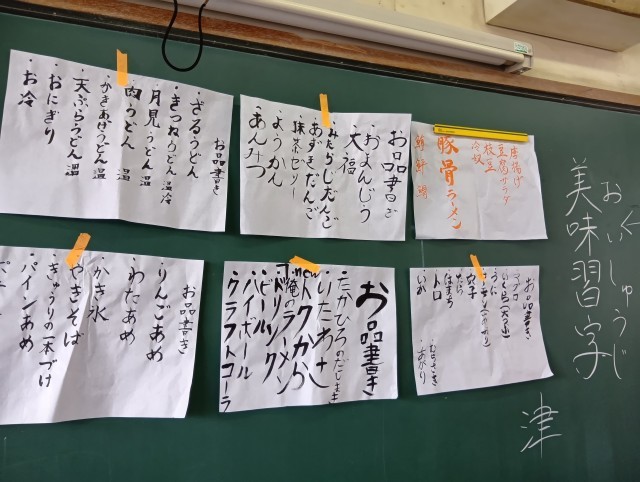 お品書き
・ざるうどん
・きつねうどん 温冷
・月見うどん 温
・肉うどん 温
・かきあげうどん 温
・天ぷらうどん 温
・おにぎり
・お冷
お品書き
・おまんじう
・大福
・みたらしだんご
・あずきだんご
・抹茶ゼリー
・ようかん
・あんみつ
唐揚げ
豆腐サラダ
枝豆
冷奴
豚骨ラーメン
お品書き
・りんごあめ
・わたあめ
・かき氷
・やきそば
・きゅうりの一本づけ
・パインあめ
お品書き
たかひろのだしまき
・いたわさ
・new トクから
・俺のラーメン
・ドリンク
・ビール
・ハイボール
・クラフトコーラ
お品書き
マグロ
いくら(大小)
うに
穴子
はまち
トロ
いか
・むらさき
・あがり
おいしゅうじ
美味習字
津